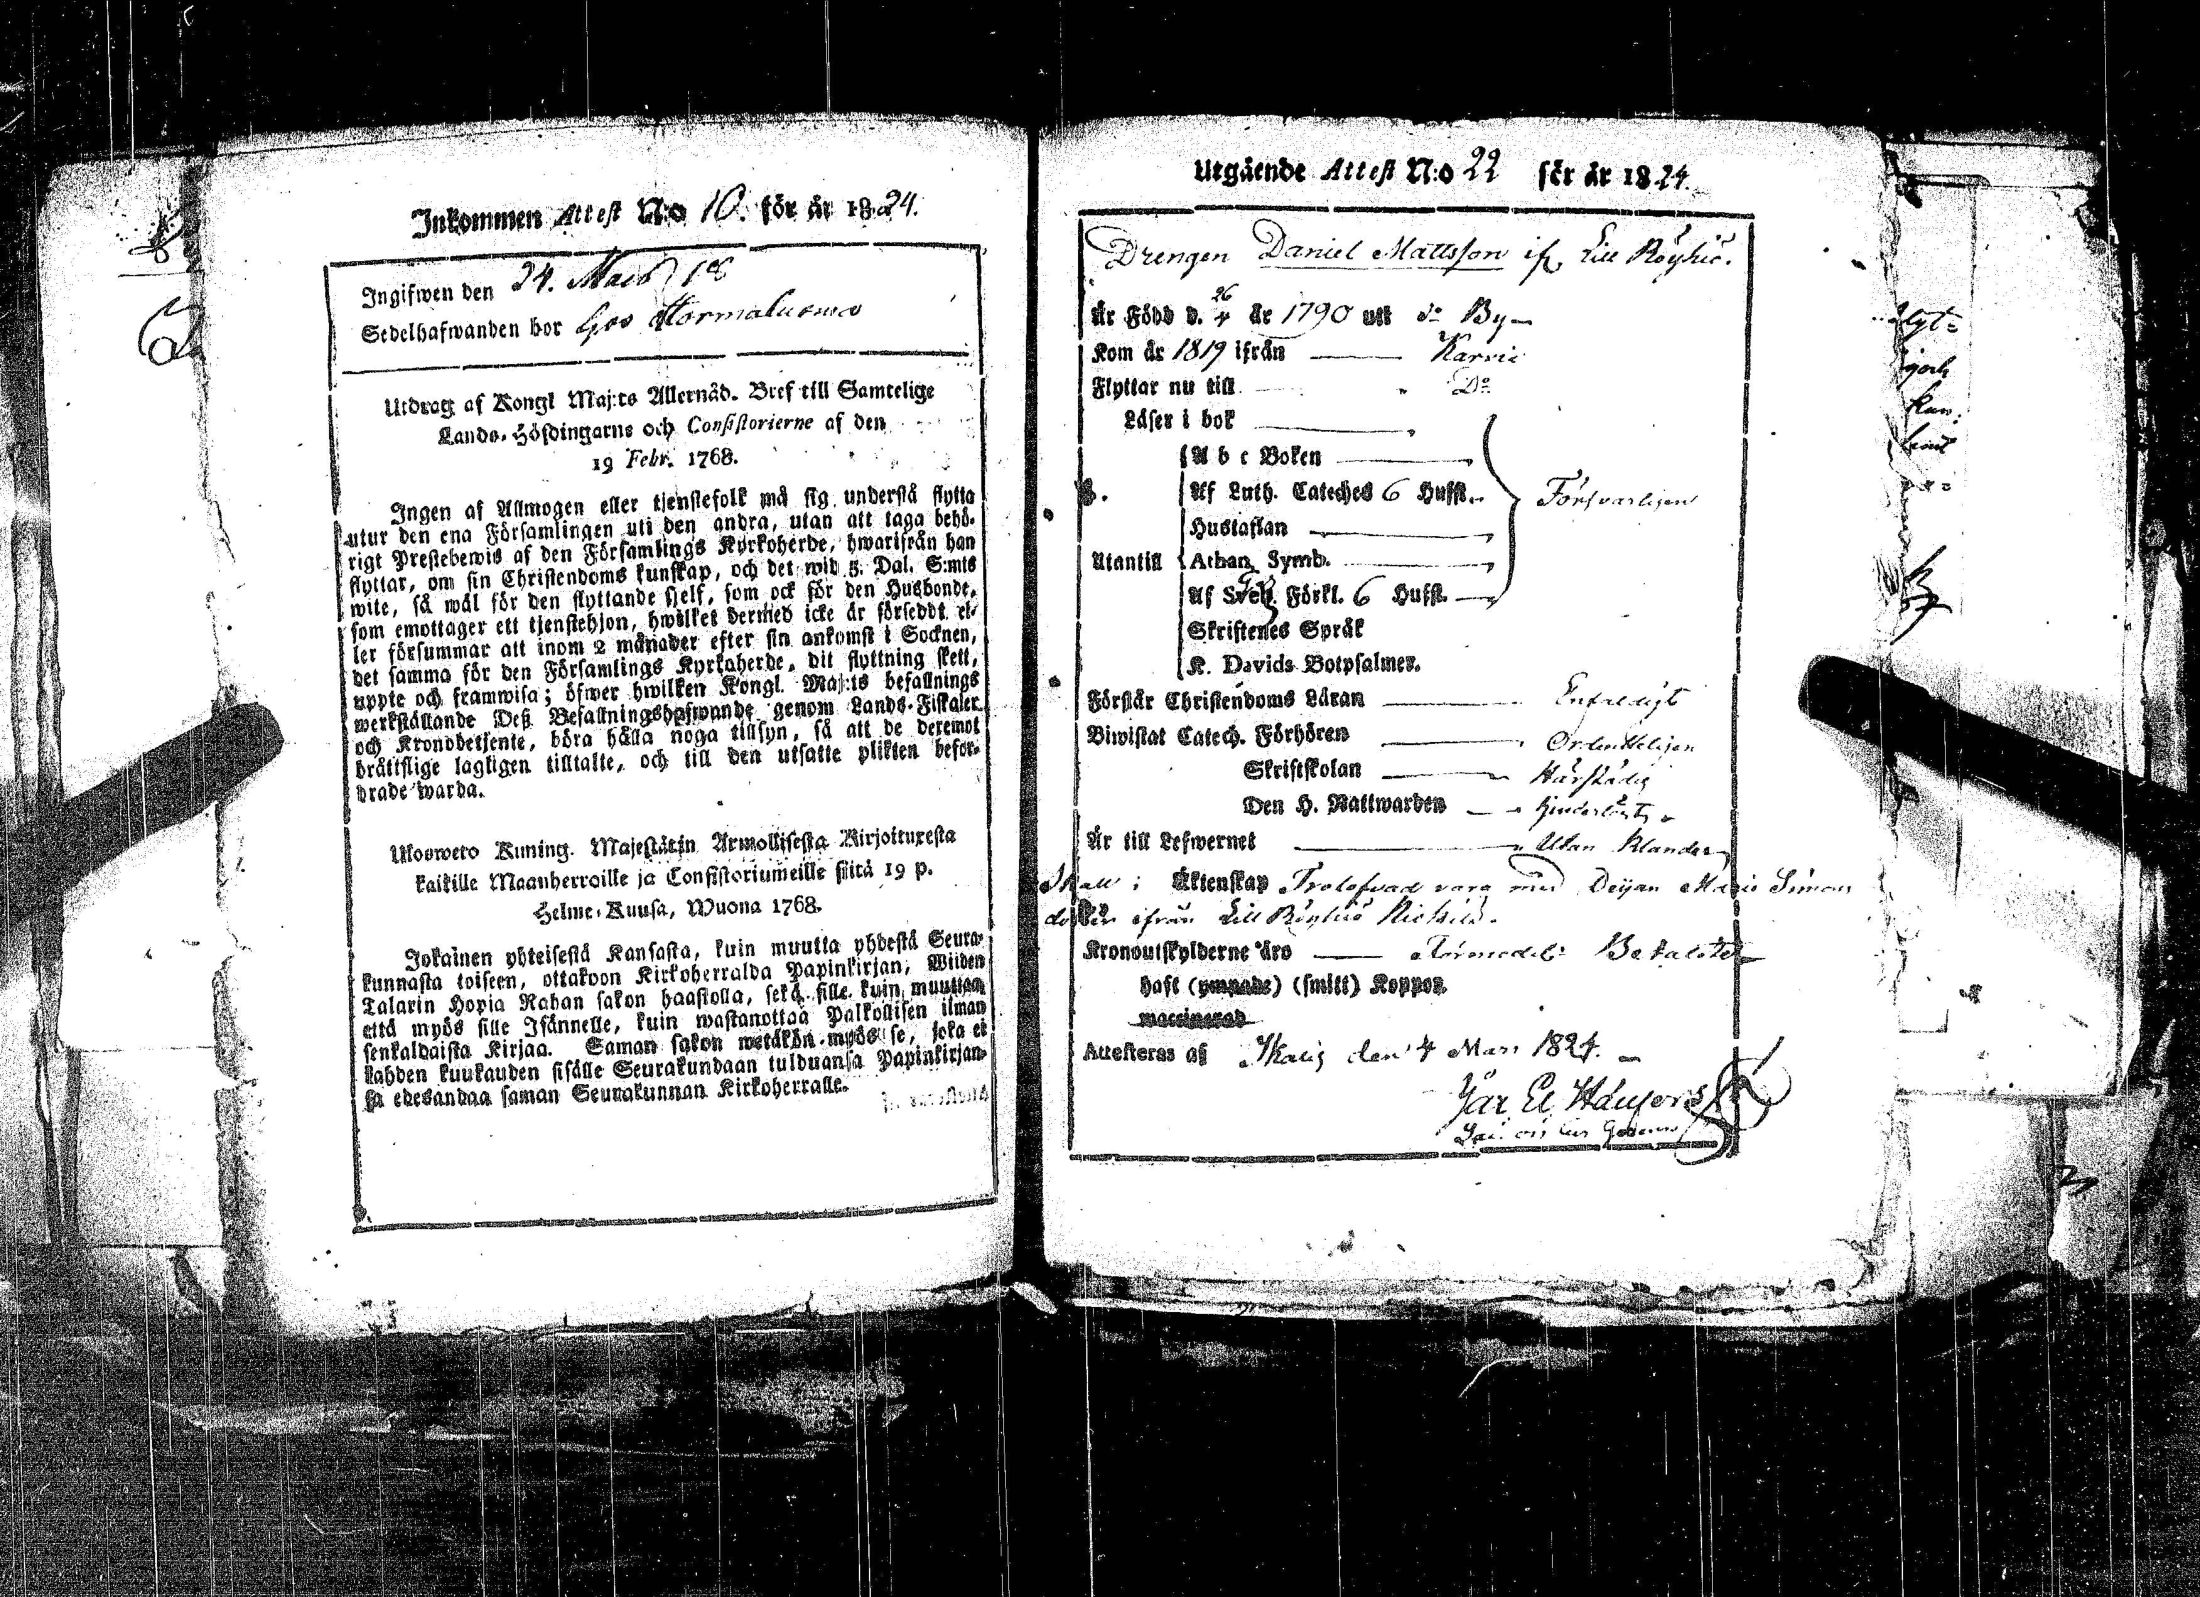 Inkommen Attest N:o 10. för år 1824.
Ingifwen den 24. Mars
Sedelhafwanden bor hos
Utdrag af Kongl Maj:ts Allernåd. Bref till Samtelige
Lands-Höfdingarne och Consistorierne af den
19 Febr. 1768.
Ingen af Allmogen eller tjenstefolk må sig understå flytta
utur den ena Församlingen uti den andra, utan att taga behö-
rigt Prestebewis af den Församlings Kyrkoherde, hwarifrån han
flyttar, om sin Christendoms kunskap, och det wid 5. Dal. S:mts
wite, så wäl för den flyttande sjelf, som ock för den Husbonde,
som emottager ett tjenstehjon, hwilket dermed icke är förseddt el-
ler försummar att inom 2 månader efter sin ankomst i Socknen,
det samma för den Församlings Kyrkoherde, dit flyttning skett,
uppte och framwisa; öfwer hwilken Kongl. Maj:ts befallnings
werkställande Deß Befallningshafwande genom Lands-Fiskaler
och Kronobetjente, böra hålla noga tillsyn, så att de deremot
bråttslige lagligen tilltalte, och till den utsatte plikten befor-
drade warda.
Ulosweto Kuning. Majestätin Armollisesta Kirjoituxesta
kaikille Maanherroille ja Consistoriumeille siitä 19 p.
Helme-Kuusa, Wuona 1768.
Jokainen yhteisestä Kansasta, kuin muutta yhdestä Seura-
kunnasta toiseen, ottakoon Kirkoherralda Papinkirjan, Wiiden
Talarin Hopia Rahan sakon haastolla, sekä sille kuin muuttaa
että myös sille Isännelle, kuin wastanottaa Palkollisen ilman
senkaldaista Kirjaa. Saman sakon wetäkön myös se, joka ei
kahden kuukauden sisälle Seurakundaan tulduansa Papinkirjan-
sa edesandaa saman Seurakunnan Kirkoherralle.
Utgående Attest N:o 22 för år 1824.
Drengen Daniel Mattsson if. Lill Röyhiö.
Är Född d. 26 4 år 1790 uti do By
Kom år 1819 ifrån Karvia
Flyttar nu till Do
Läser i bok
A b c Boken
B. Af Luth. Cateches 6 Hufst. Försvarligen
Hustaflan
Utantill Athan. Symb.
Af Förkl. 6 Hufst.
Skriftenes Språk
K. Davids Botpsalmer.
Förstår Christendoms Läran Enfaldigt
Biwistat Catech. Förhören Ordentteligen
Skriftskolan Härstädes
Den H. Nattwarden hinderlöst
Är till Lefwernet Utan Klander
Skall i Äktenskap Trolofvad vara med Deijan Maria Simons
dotter ifrån Lill Röyhiö
Kronoutskylderne äro Förmedelst Betalte
Haft (ympade) (smitt) Koppor.
waccinerad
Attesteras af Ikalis den 4 Mars 1824.